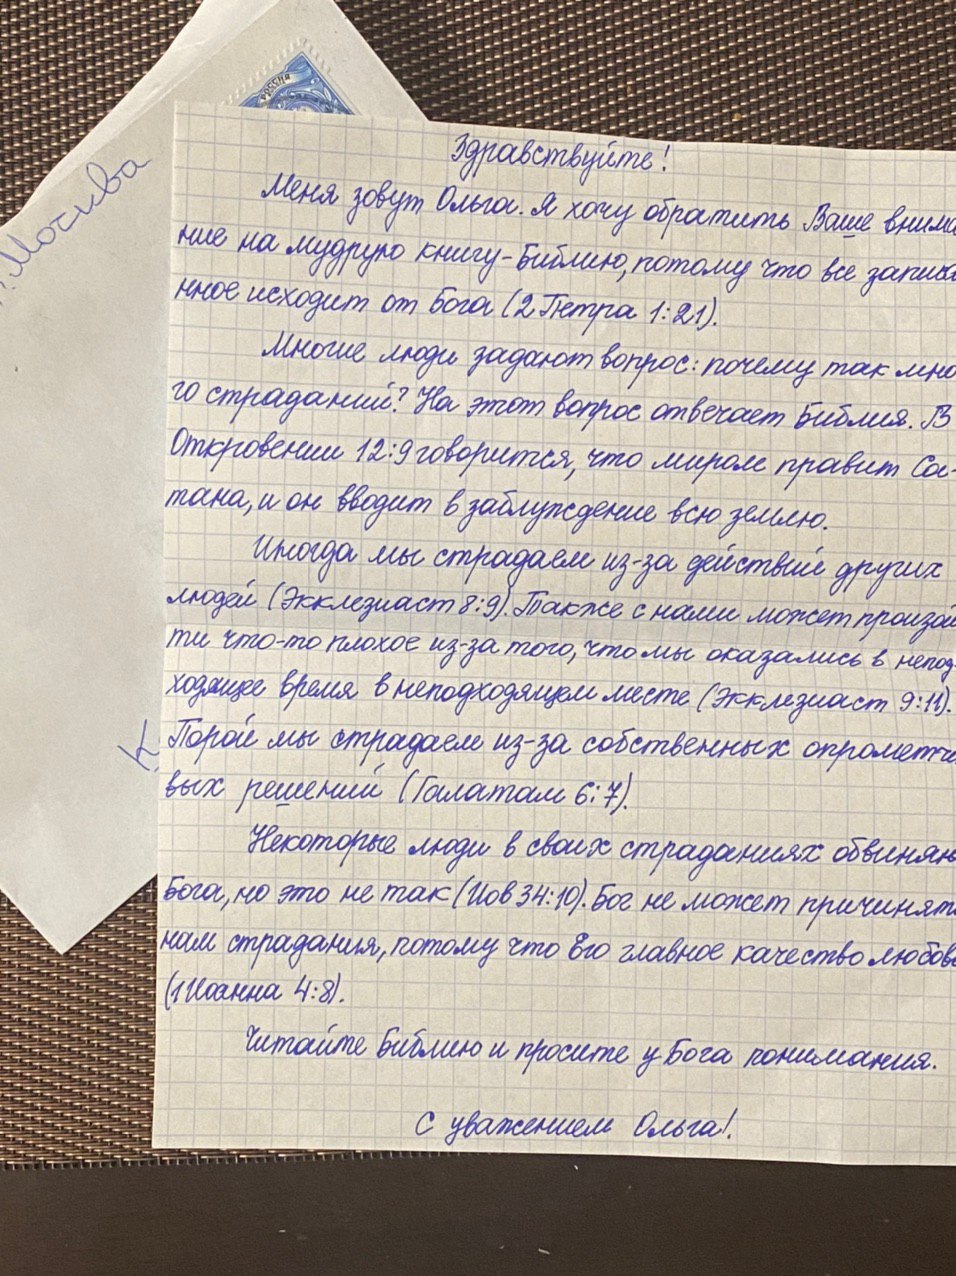 РОССИЯ
г. Москва
К
Здравствуйте!
Меня зовут Ольга. Я хочу обратить Ваше внима
ние на мудрую книгу-Библию, потому что все записа
нное исходит от Бога (2 Петра 1:21).
Многие люди задают вопрос: почему так мно
го страданий? На этот вопрос отвечает Библия. В
Откровении 12:9 говорится, что миром правит Са-
тана, и он вводит в заблуждение всю землю.
Иногда мы страдаем из-за действий других
людей (Экклезиаст 8:9). Также с нами может произой
ти что-то плохое из-за того, что мы оказались в непод
ходящее время в неподходящем месте (Экклезиаст 9:11).
Порой мы страдаем из-за собственных опрометчи
вых решений (Галатам 6:7).
Некоторые люди в своих страданиях обвиняю
Бога, но это не так (Иов 34:10). Бог не может причинят
нам страдания, потому что Его главное качество любовь
(1 Иоанна 4:8).
Читайте Библию и просите у Бога понимания.
С уважением Ольга!